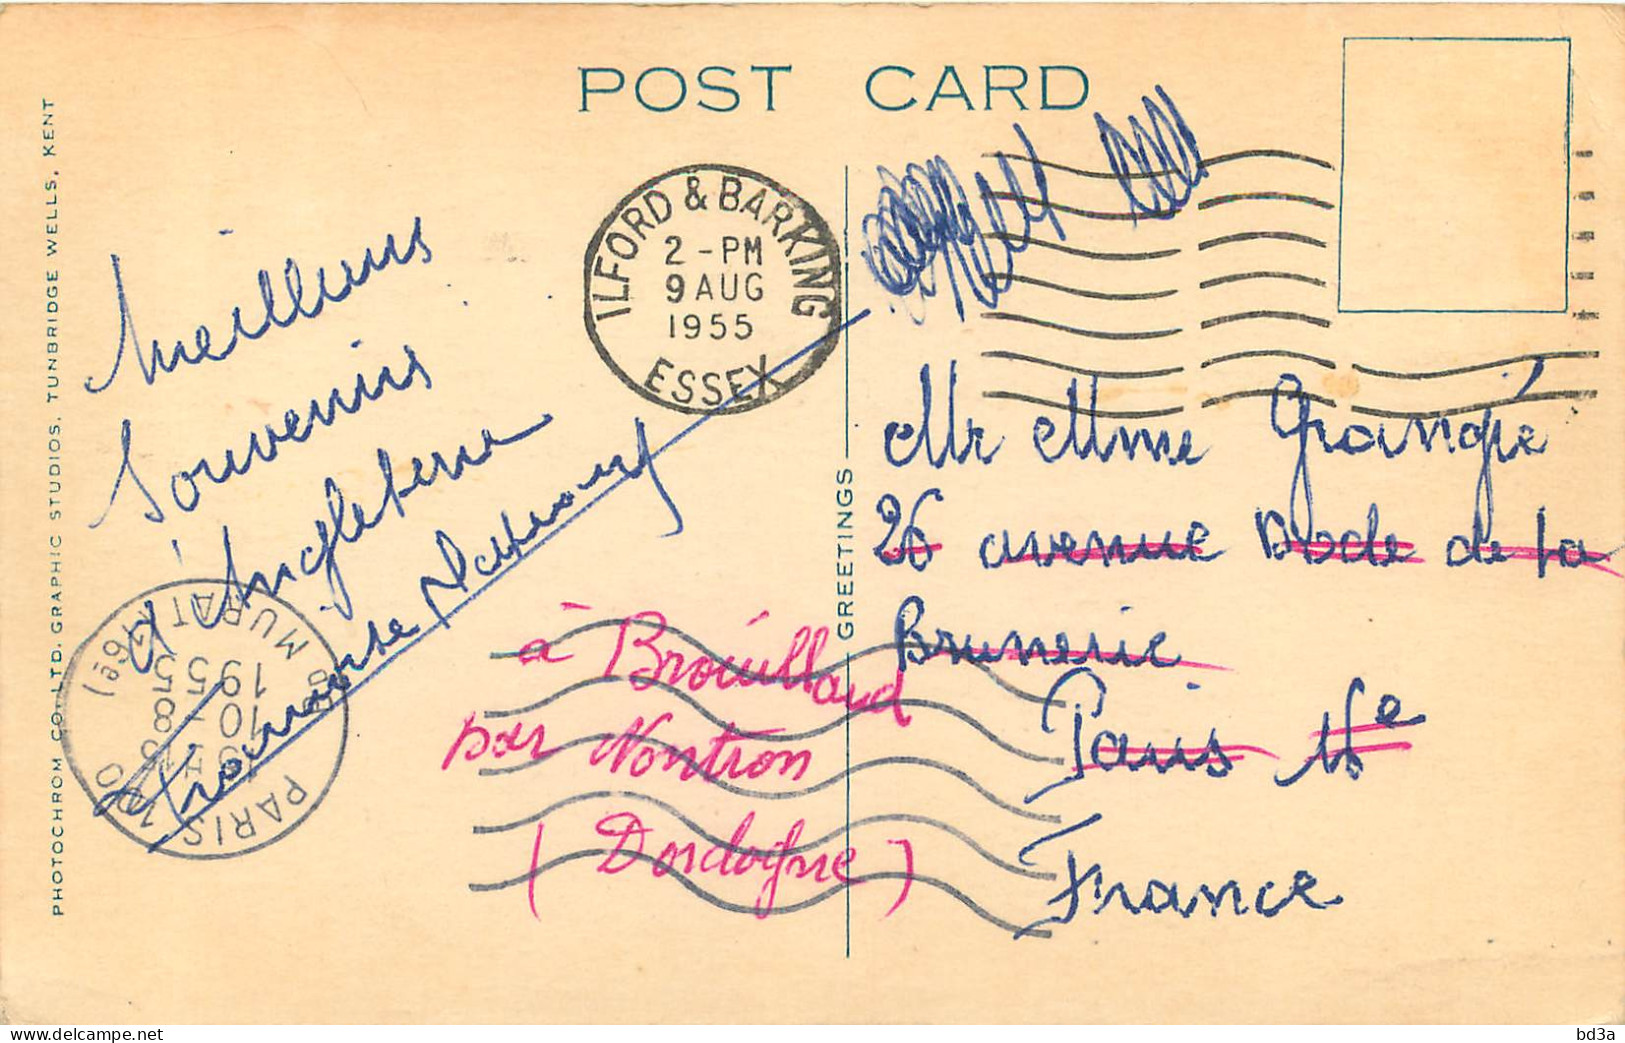 POST CARD
PHOTOCHROM CO. LTD. GRAPHIC STUDIOS, TUNBRIDGE WELLS, KENT
ILFORD & BARKING
2 - PM
9 AUG
1955
ESSEX
Meilleurs
Souvenirs
d'Angleterre
Françoise
GREETINGS
Mr Mme Grangié
26 avenue Dode de la
Brunerie
Paris 16e
France
à Brouillaud
par Nontron
(Dordogne)
PARIS
R. MURAT (16e)
10 - 8
1955
bd3a